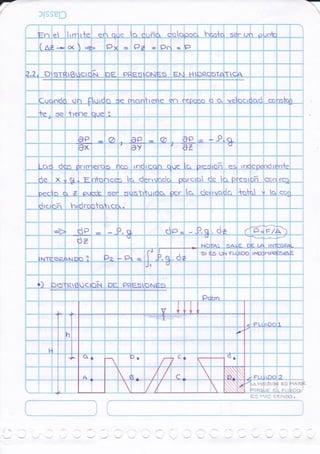 Classic
En el límite en que la cuña colapsa hasta ser un punto
(Δz → ∝) ⇒ Px = Pz = Pn = P
2.2. DISTRIBUCIÓN DE PRESIONES EN HIDROSTATICA
Cuando un fluido se mantiene en reposo o a velocidad constan
te, se tiene que:
∂P/∂x = 0 , ∂P/∂y = 0 , ∂P/∂z = - ρ.g
Las dos primeras nos indican que la presión es independiente
de x e y. Entonces la derivada parcial de la presión con res
pecto a z puede ser sustituida por la derivada total y la con
dición hidrostatica.
⇒ dP/dz = - ρ.g dP = - ρ.g.dz P=F/A
NOTA: SALE DE LA INTEGRAL
SI ES UN FLUIDO INCOMPRESIBLE
INTEGRANDO: P2 - P1 = ∫ ρ.g.dz
•) DISTRIBUCIÓN DE PRESIONES
Patm
FLUIDO 1
h
H
a. b. c. d.
A. B. C. D.
FLUIDO 2
LA PRESION ES MAYOR
PORQUE EL FLUIDO
ES MAS DENSO.